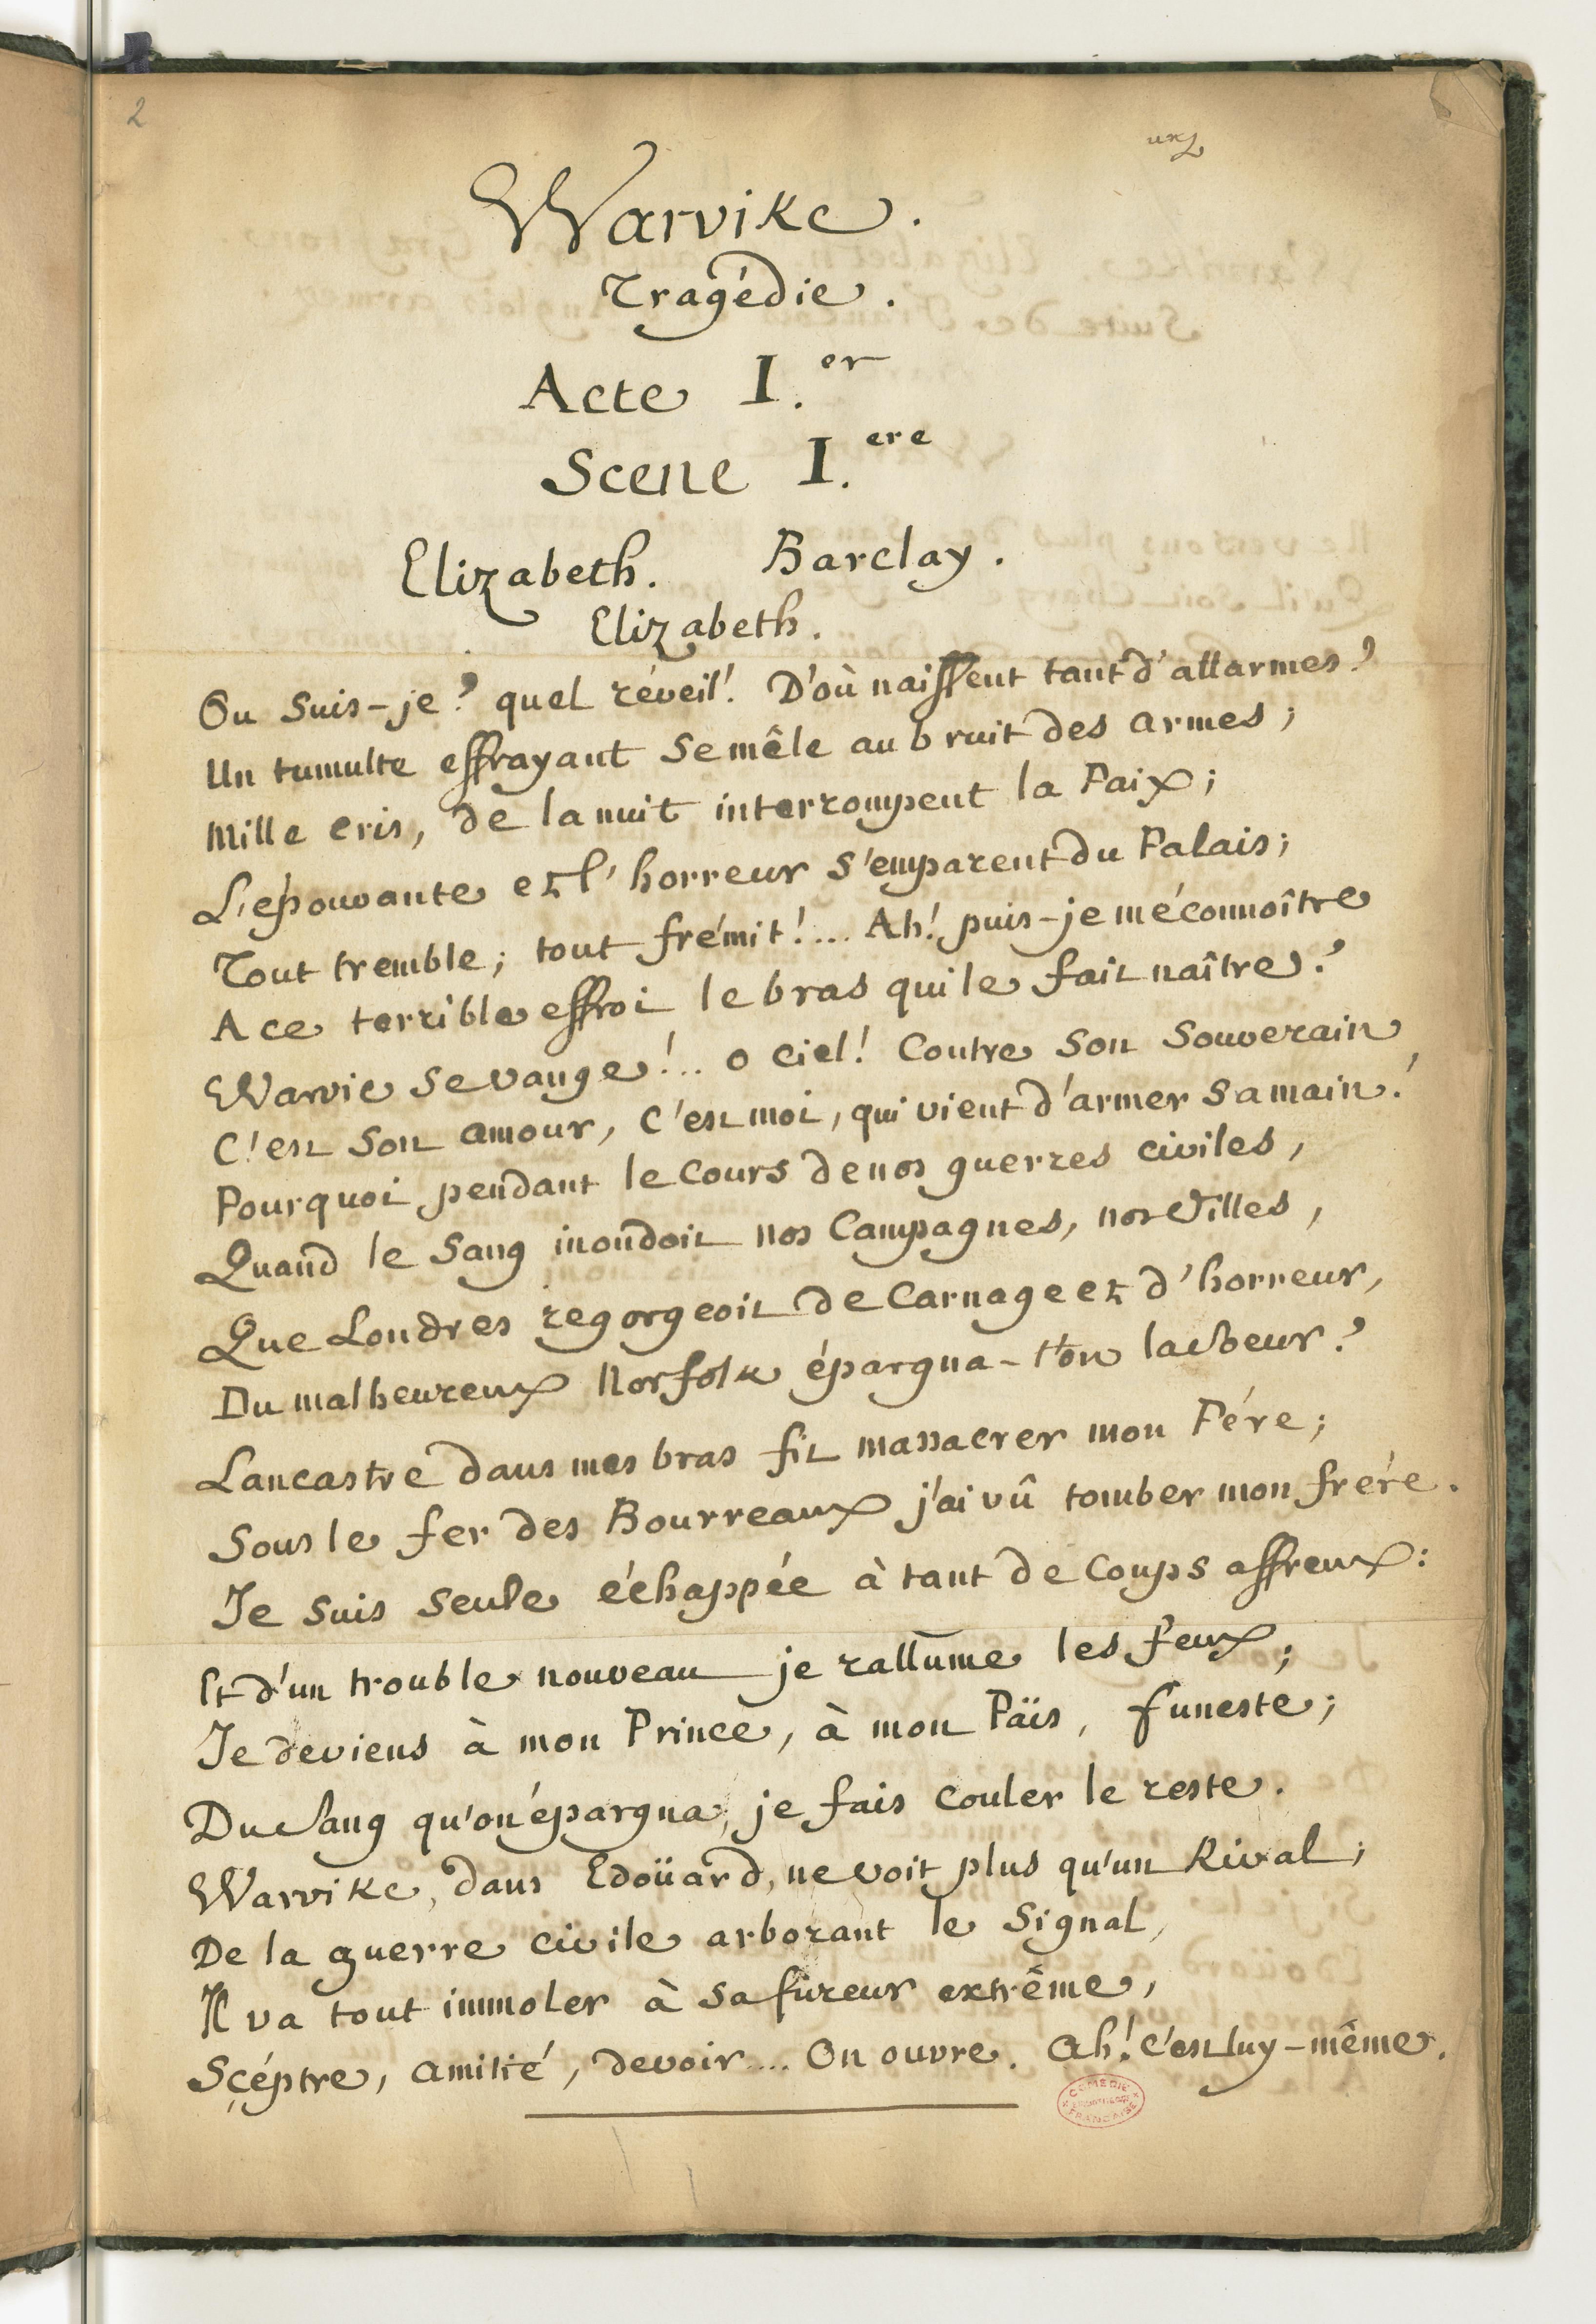 2
Warvike.
Tragédie.
Acte I.er
Scene I.ere
Elizabeth. Barclay.
Elizabeth.
Ou suis-je? quel réveil! D'où naissent tant d'allarmes?
Un tumulte effrayant se mêle au bruit des armes;
Mille cris, de la nuit interrompent la Paix;
L'épouvante et l'horreur s'emparent du Palais;
Tout tremble; tout frémit!... Ah! puis-je méconnoître
A ce terrible effroi le bras qui le fait naître?
Warvic se vange!.. o ciel! Contre son souverain,
C'est son amour, c'est moi, qui vient d'armer sa main!
Pourquoi pendant le Cours de nos guerres civiles,
Quand le sang inondoit nos Campagnes, nos Villes,
Que Londres regorgeoit de Carnage et d'horreur,
Du malheureux Norfolk épargna-t'on la soeur?
Lancastre dans mes bras fit massacrer mon Pére;
Sous le fer des Bourreaux j'ai vû tomber mon frére.
Je suis seule échappée à tant de Coups affreux:
Et d'un trouble nouveau je rallume les feux;
Je deviens à mon Prince, à mon Païs, funeste;
Du sang qu'on épargna, je fais couler le reste.
Warvike, dans Edoüard, ne voit plus qu'un Rival;
De la guerre civile arborant le Signal,
Il va tout immoler à sa fureur extrême,
Sçéptre, amitié, devoir... On ouvre. Ah! c'est luy-même.
COMEDIE FRANCAISE